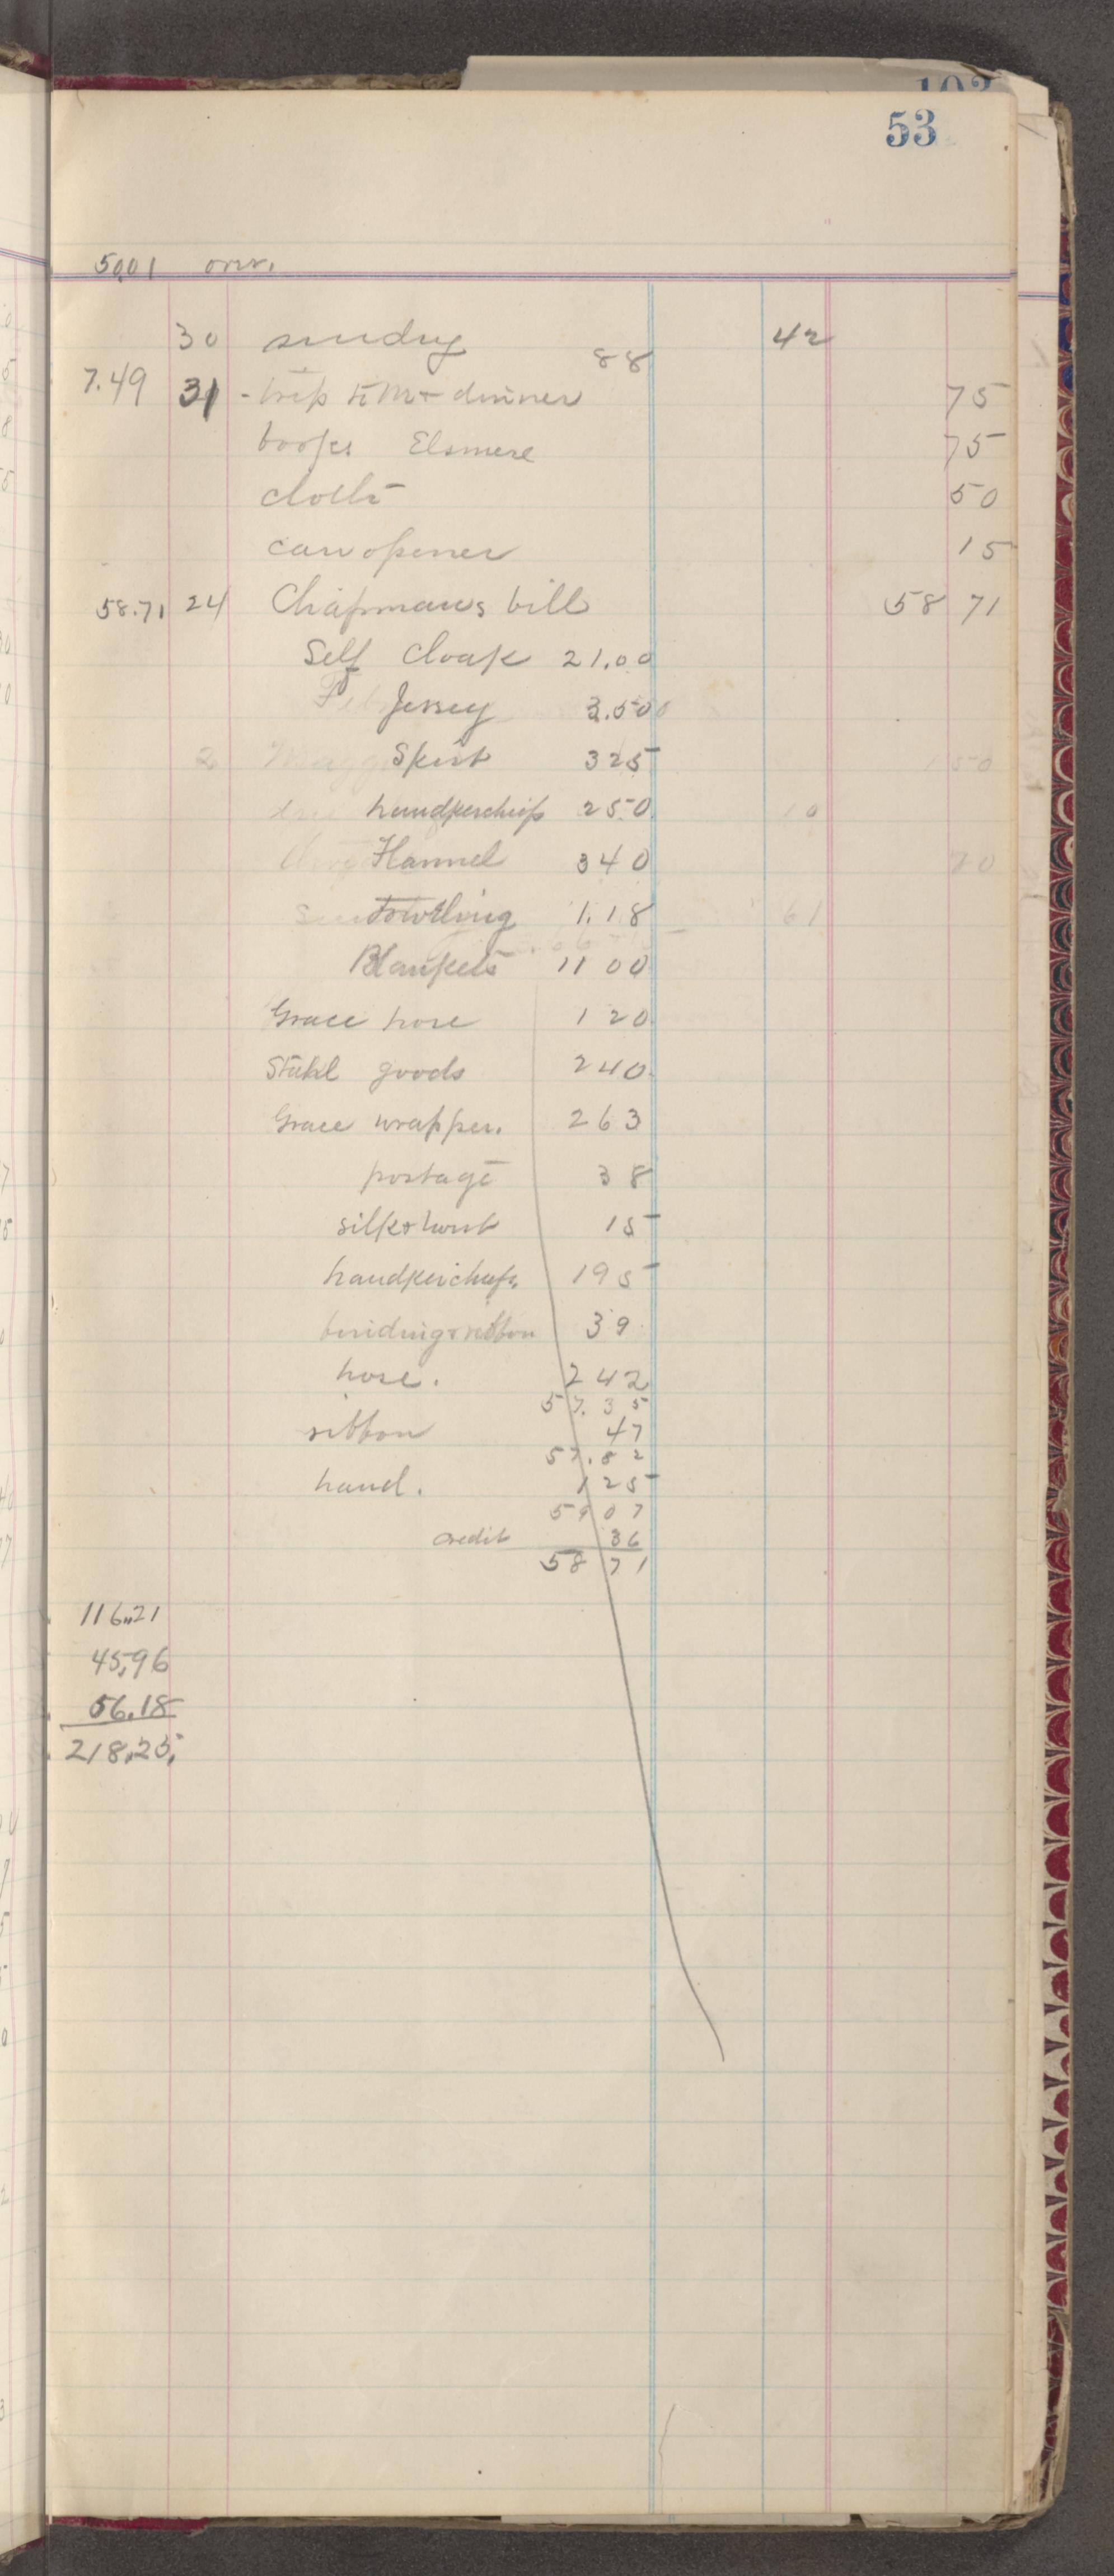 53
50.01 over.
30 sundry 42
88
7.49 31 - trip to M + dinner 75
books Elsmere 75
cloth 50
can opener 15
58.71 24 Chapmans bill 58 71
Self Cloak 21.00
Jersey 3.50
Skirt 325
handkerchiefs 250
Flannel 340
Towelling 1.18
Blankets 11 00
Grace hose 1 20
Stahl goods 240
Grace wrapper. 263
postage 38
silk + twist 15
handkerchiefs. 195
binding + ribbon 39
hose. 242
57.35
ribbon 47
57.82
hand. 125
59 07
credit 36
58 71
116.21
45.96
56.18
218.25